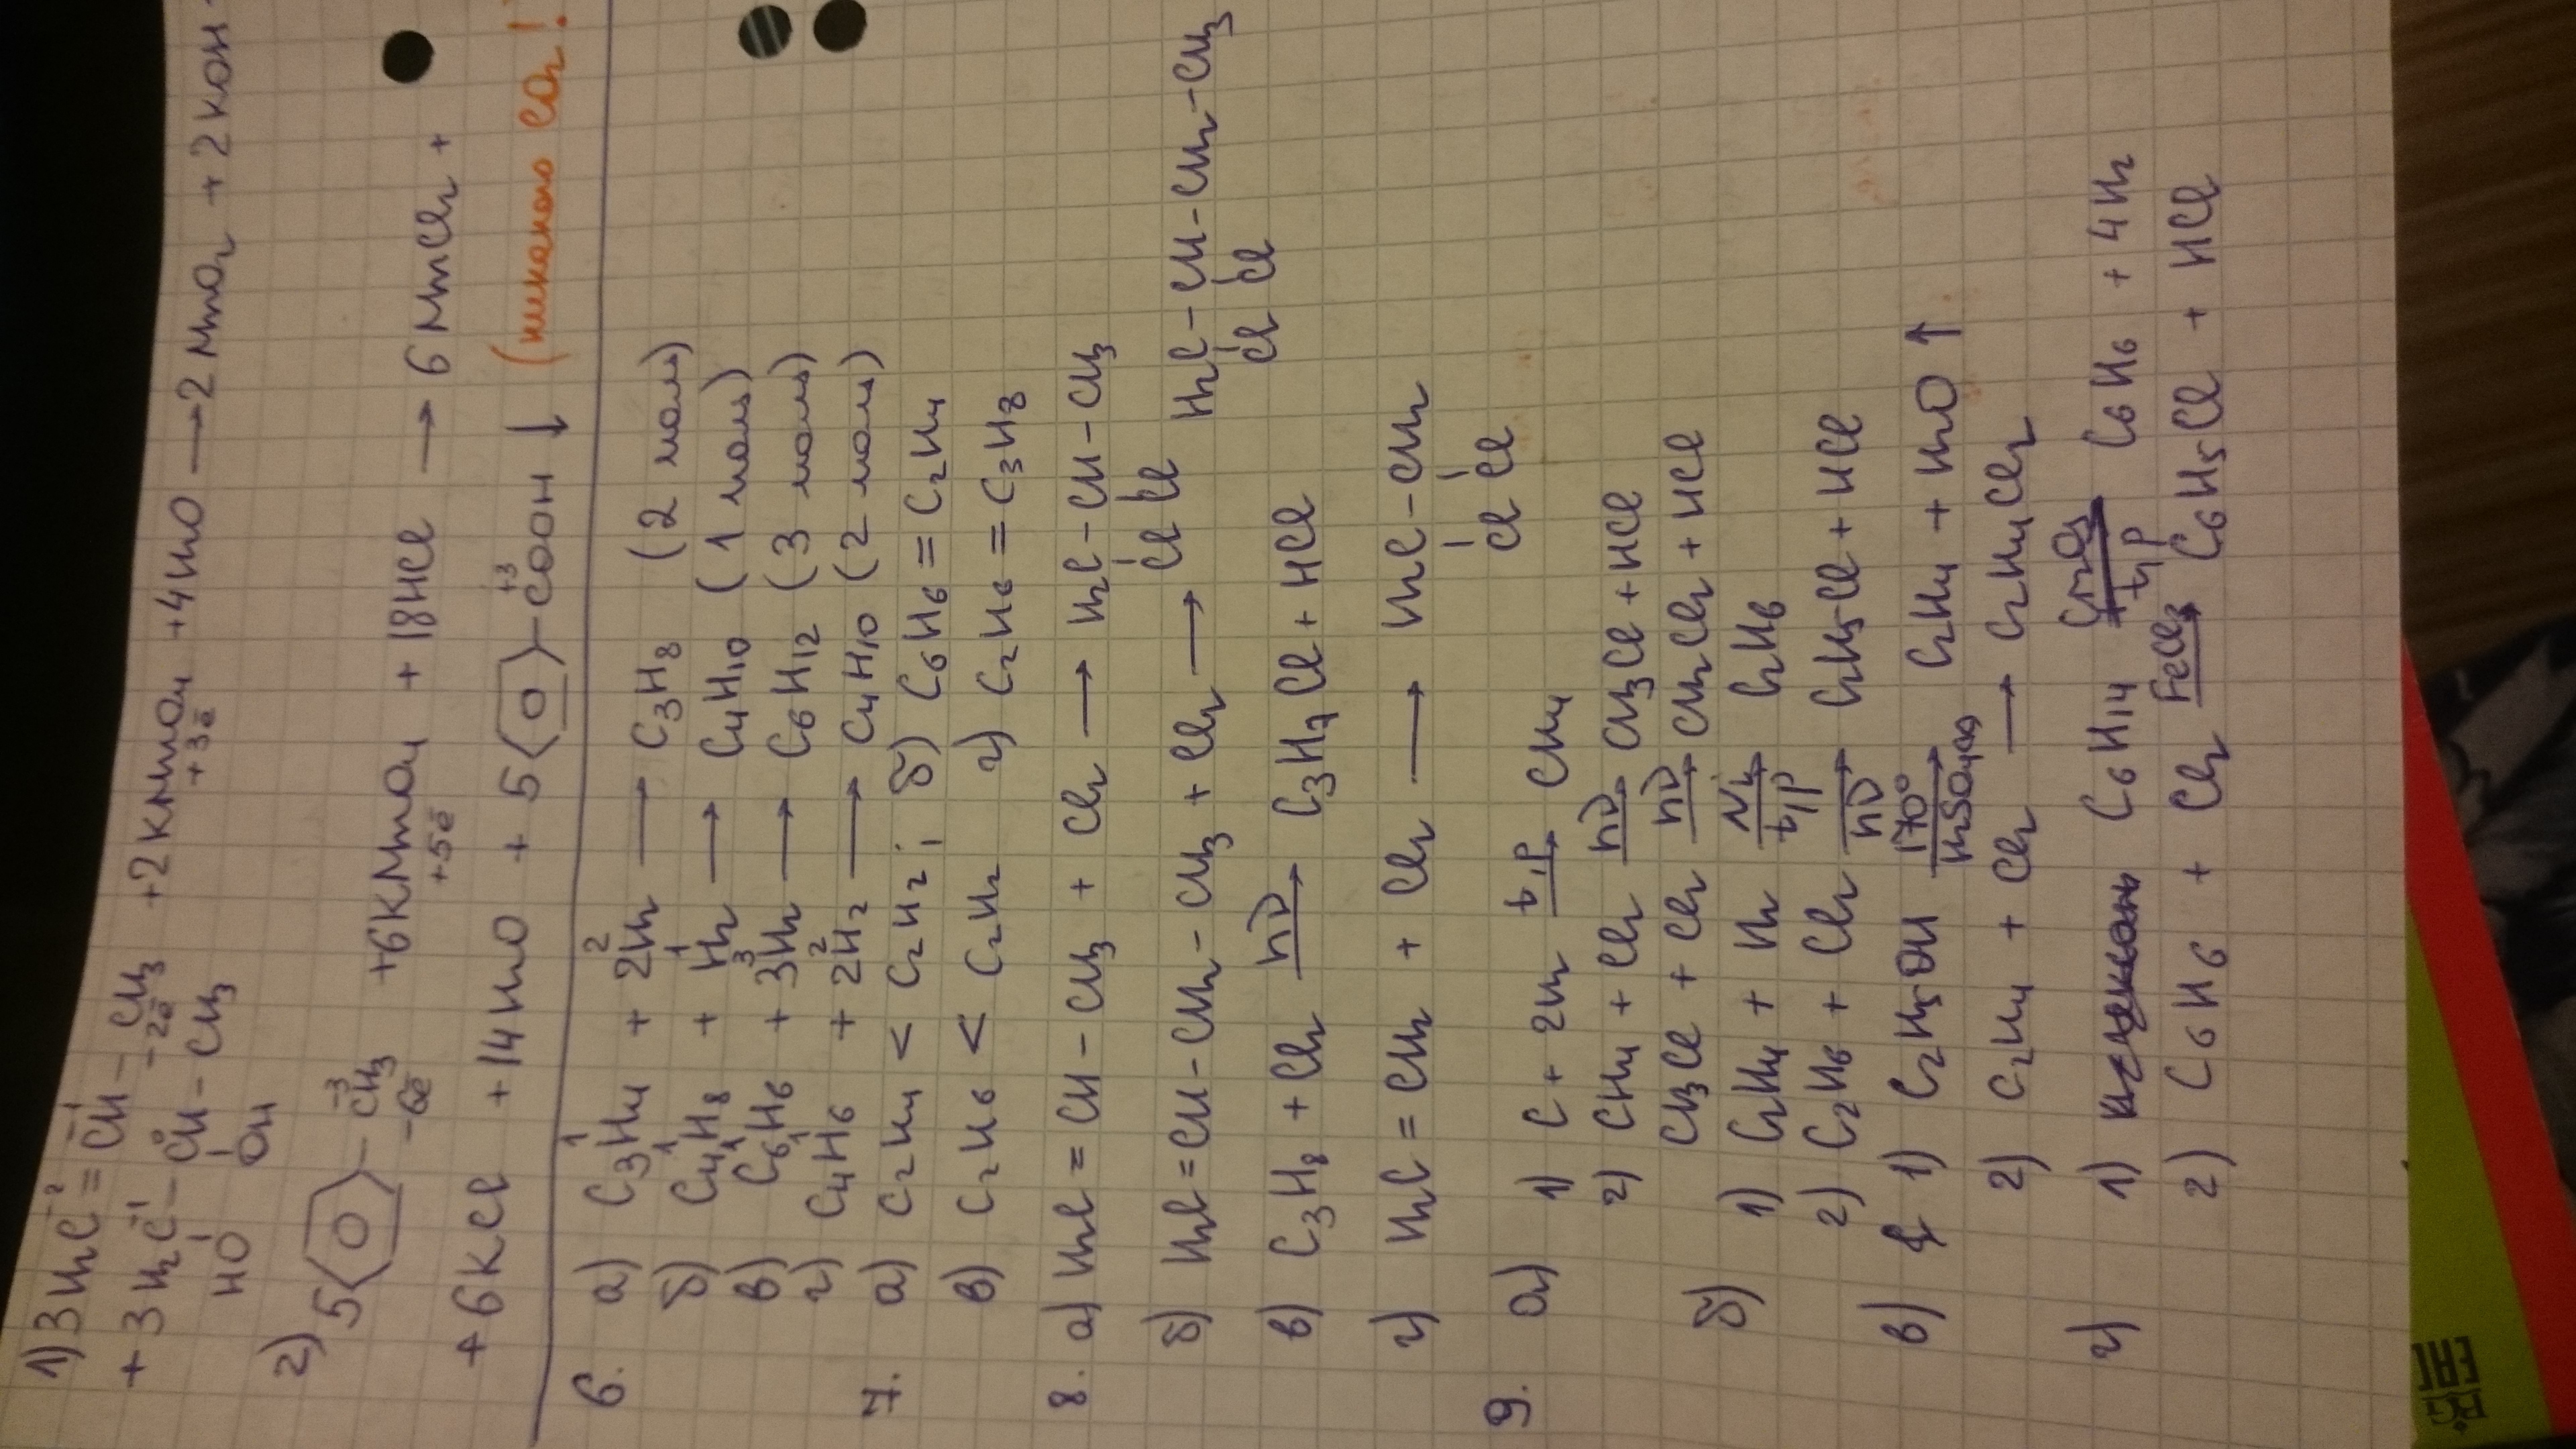 1) 3H₂C⁻² = C⁻¹H – CH₃ + 2KMnO₄ + 4H₂O → 2MnO₂ + 2KOH
-2ē +3ē
+ 3H₂C⁻¹ – C⁰H – CH₃
HO OH
2) 5 C⁻³H₃ + 6KMnO₄ + 18HCl → 6MnCl₂ +
-6ē +5ē
+ 6KCl + 14H₂O + 5 C⁺³OOH ↓ (никакого CO₂!
6. а) C₃H₄ + 2H₂ → C₃H₈ (2 моль)
1 2
б) C₄H₈ + H₂ → C₄H₁₀ (1 моль)
1 1
в) C₆H₆ + 3H₂ → C₆H₁₂ (3 моль)
1 3
г) C₄H₆ + 2H₂ → C₄H₁₀ (2 моль)
1 2
7. а) C₂H₄ < C₂H₂; б) C₆H₆ = C₂H₄
в) C₂H₆ < C₂H₂ г) C₂H₆ = C₃H₈
8. а) H₂C = CH – CH₃ + Cl₂ → H₂C – CH – CH₃
Cl Cl
б) H₂C = CH – CH₂ – CH₃ + Cl₂ → H₂C – CH – CH₂ – CH₃
Cl Cl
в) C₃H₈ + Cl₂ hν→ C₃H₇Cl + HCl
г) H₂C = CH₂ + Cl₂ → H₂C – CH₂
Cl Cl
9. а) 1) C + 2H₂ t,p→ CH₄
2) CH₄ + Cl₂ hν→ CH₃Cl + HCl
CH₃Cl + Cl₂ hν→ CH₂Cl₂ + HCl
б) 1) C₂H₄ + H₂ Ni t,p→ C₂H₆
2) C₂H₆ + Cl₂ hν→ C₂H₅Cl + HCl
в) 1) C₂H₅OH 170° H₂SO₄→ C₂H₄ + H₂O ↑
2) C₂H₄ + Cl₂ → C₂H₄Cl₂
г) 1) C₆H₁₄ t,p C₆H₆ + 4H₂
2) C₆H₆ + Cl₂ FeCl₃→ C₆H₅Cl + HCl
EAC